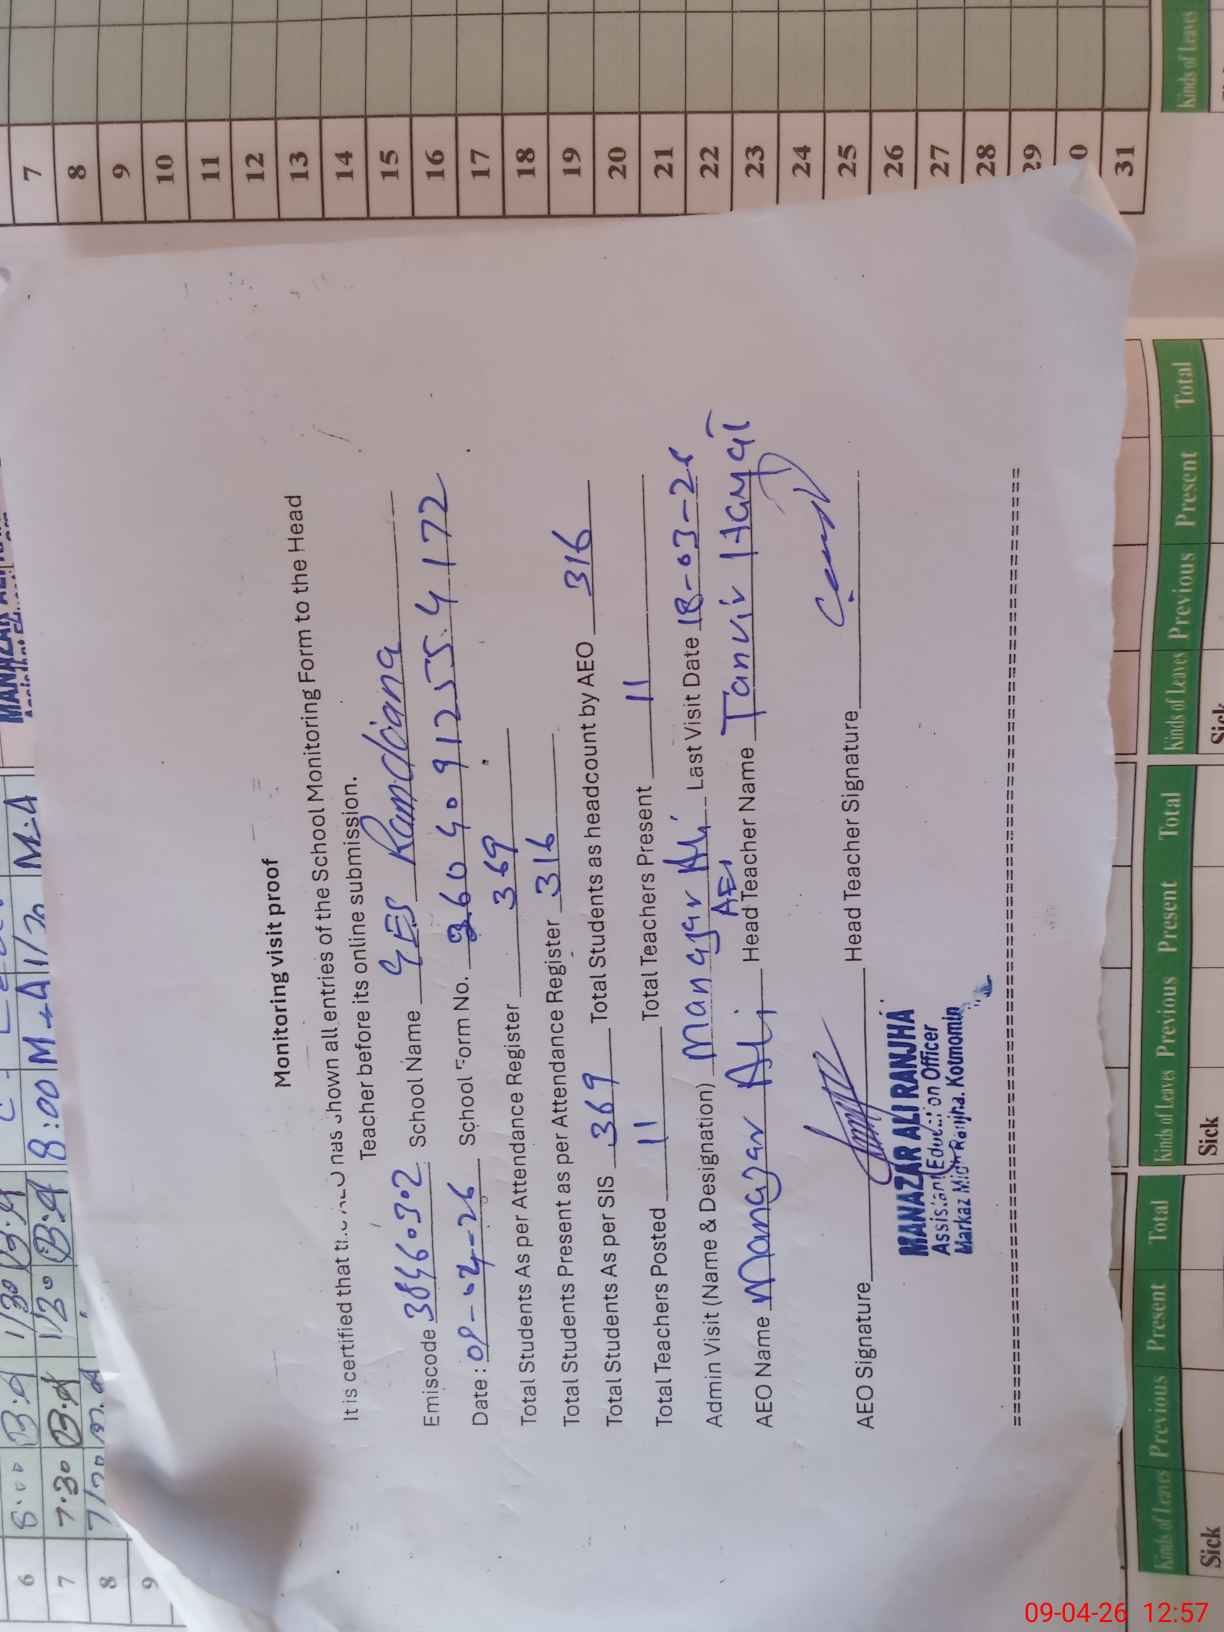 Monitoring visit proof
It is certified that the AEO has shown all entries of the School Monitoring Form to the Head
Teacher before its online submission.
Emiscode 38460302 School Name GES Ramdiana
Date : 09-04-26 School Form No. 26040912554172
Total Students As per Attendance Register 369
Total Students Present as per Attendance Register 316
Total Students As per SIS 369 Total Students as headcount by AEO 316
Total Teachers Posted 11 Total Teachers Present 11
Admin Visit (Name & Designation) Manazar Ali AEO Last Visit Date 18-03-26
AEO Name Manazar Ali Head Teacher Name Tanvir Hayat
AEO Signature Head Teacher Signature
MANAZAR ALI RANJHA
Assistant Education Officer
Markaz Midh Ranjha, Kotmomin
6 8:00 1/30
7 7:30 1/30 8:00 M.A 1/30 M.A
8 7/30
9
7
8
9
10
11
12
13
14
15
16
17
18
19
20
21
22
23
24
25
26
27
28
29
31
Kinds of Leaves Previous Present Total
Sick
Kinds of Leaves Previous Present Total
Sick
Kinds of Leaves Previous Present Total
Sick
Kinds of Leaves
09-04-26 12:57